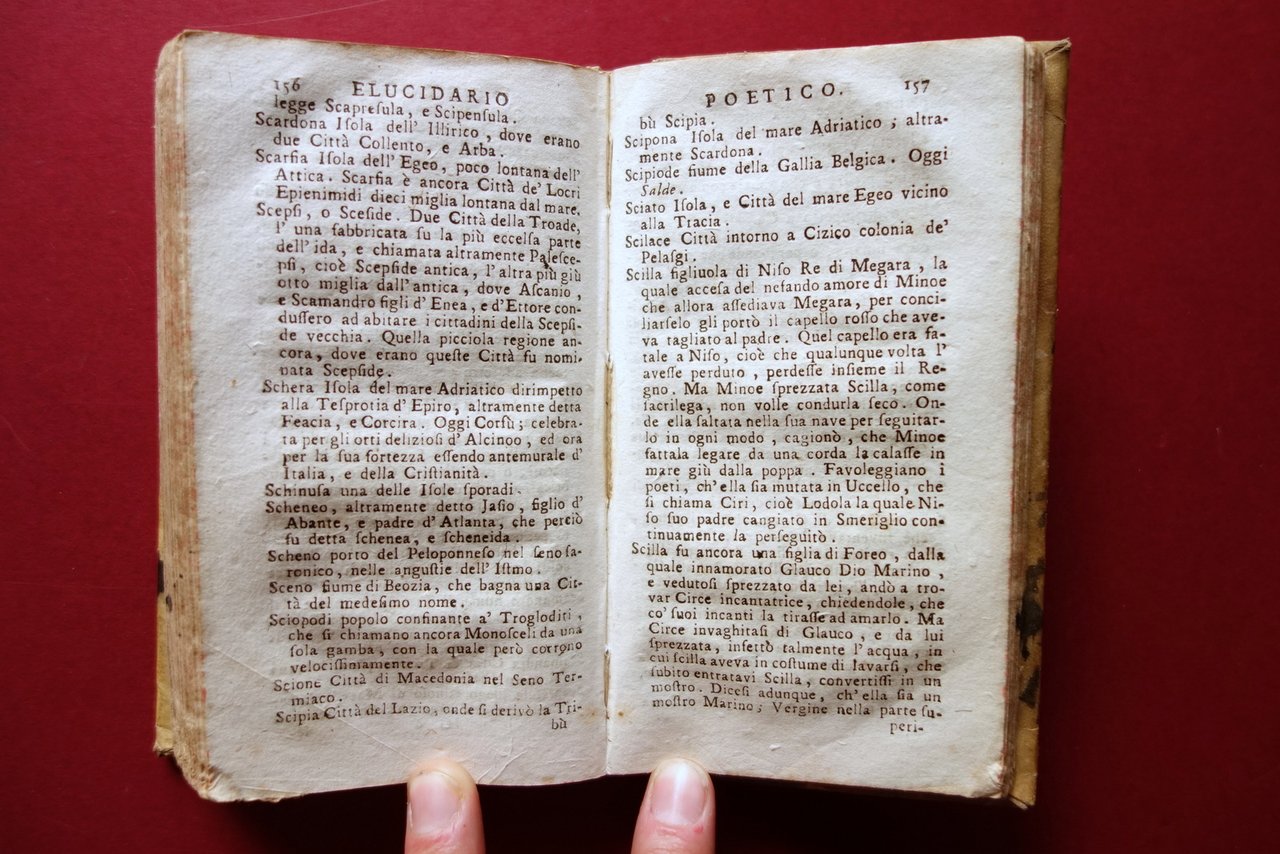 156 ELUCIDARIO
legge Scapreſula, e Scipenſula.
Scardona Iſola dell' Illirico, dove erano
due Città Collento, e Arba.
Scarfia Iſola dell' Egeo, poco lontana dell'
Attica. Scarfia è ancora Città de' Locri
Epienimidi dieci miglia lontana dal mare.
Scepſi, o Sceſide. Due Città della Troade,
l' una fabbricata ſu la più eccelſa parte
dell' ida, e chiamata altramente Paleſce-
pſi, cioè Scepſide antica, l'altra più giù
otto miglia dall'antica, dove Aſcanio,
e Scamandro figli d' Enea, e d'Ettore con-
duſſero ad abitare i cittadini della Scepſi-
de vecchia. Quella picciola regione an-
cora, dove erano queſte Città fu nomi-
nata Scepſide.
Schera Iſola del mare Adriatico dirimpetto
alla Teſprotia d' Epiro, altramente detta
Feacia, e Corcira. Oggi Corfù; celebra-
ta per gli orti delizioſi d' Alcinoo, ed ora
per la ſua fortezza eſſendo antemurale d'
Italia, e della Criſtianità.
Schinuſa una delle Iſole ſporadi.
Scheneo, altramente detto Jaſio, figlio d'
Abante, e padre d' Atlanta, che perciò
fu detta ſchenea, e ſcheneida.
Scheno porto del Peloponneſo nel ſeno ſa-
ronico, nelle anguſtie dell' Iſtmo.
Sceno fiume di Beozia, che bagna una Cit-
tà del medeſimo nome.
Sciopodi popolo confinante a' Trogloditi,
che ſi chiamano ancora Monoſceli da una
ſola gamba, con la quale però corrono
velociſſimamente.
Scione Città di Macedonia nel Seno Ter-
miaco.
Scipia Città del Lazio, onde ſi derivò la Tri-
bù
POETICO. 157
bù Scipia.
Scipona Iſola del mare Adriatico; altra-
mente Scardona.
Scipiode fiume della Gallia Belgica. Oggi
Salde.
Sciato Iſola, e Città del mare Egeo vicino
alla Tracia.
Scilace Città intorno a Cizico colonia de'
Pelaſgi.
Scilla figliuola di Niſo Re di Megara, la
quale acceſa del nefando amore di Minoe
che allora aſſediava Megara, per conci-
liarſelo gli portò il capello roſſo che ave-
va tagliato al padre. Quel capello era fa-
tale a Niſo, cioè che qualunque volta l'
aveſſe perduto, perdeſſe inſieme il Re-
gno. Ma Minoe ſprezzata Scilla, come
ſacrilega, non volle condurla ſeco. On-
de ella ſaltata nella ſua nave per ſeguitar-
lo in ogni modo, cagionò, che Minoe
fattala legare da una corda la calaſſe in
mare giù dalla poppa. Favoleggiano i
poeti, ch' ella ſia mutata in Uccello, che
ſi chiama Ciri, cioè Lodola la quale Ni-
ſo ſuo padre cangiato in Smeriglio con-
tinuamente la perſeguitò.
Scilla fu ancora una figlia di Foreo, dalla
quale innamorato Glauco Dio Marino,
e vedutoſi ſprezzato da lei, andò a tro-
var Circe incantatrice, chiedendole, che
co' ſuoi incanti la tiraſſe ad amarlo. Ma
Circe invaghitaſi di Glauco, e da lui
ſprezzata, infettò talmente l'acqua, in
cui ſcilla aveva in coſtume di lavarſi, che
ſubito entratavi Scilla, convertiſſi in un
moſtro. Diceſi adunque, ch' ella ſia un
moſtro Marino; Vergine nella parte ſu-
peri-